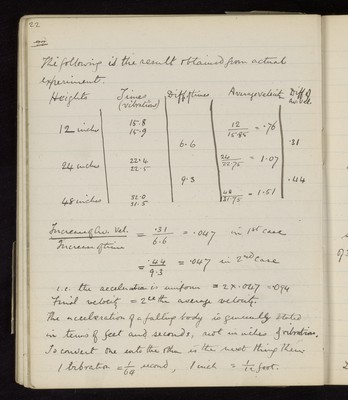 22
The following is the result obtained from actual
experiment.
Heights Times Diff of times Average velocit Diff of
(vibrations) av. vel.
12 inches 15.8 12/15.85 = .76
15.9
6.6 .31
24 inches 22.4 24/22.75 = 1.07
22.5
9.3 .44
48 inches 32.0 48/31.75 = 1.51
31.5
Increase of Av. Vel. / Increase of time = .31/6.6 = .047 in 1st case
= .44/9.3 = .047 in 2nd case
i.e. the acceleration is uniform = 2 x .047 = .094
Final velocity = 2ce the average velocity.
The acceleration of a falling body is generally stated
in terms of feet and seconds, not in inches & vibrations.
To convert one into the other is the next thing then
1 vibration = 1/64 second, 1 inch = 1/12 foot.